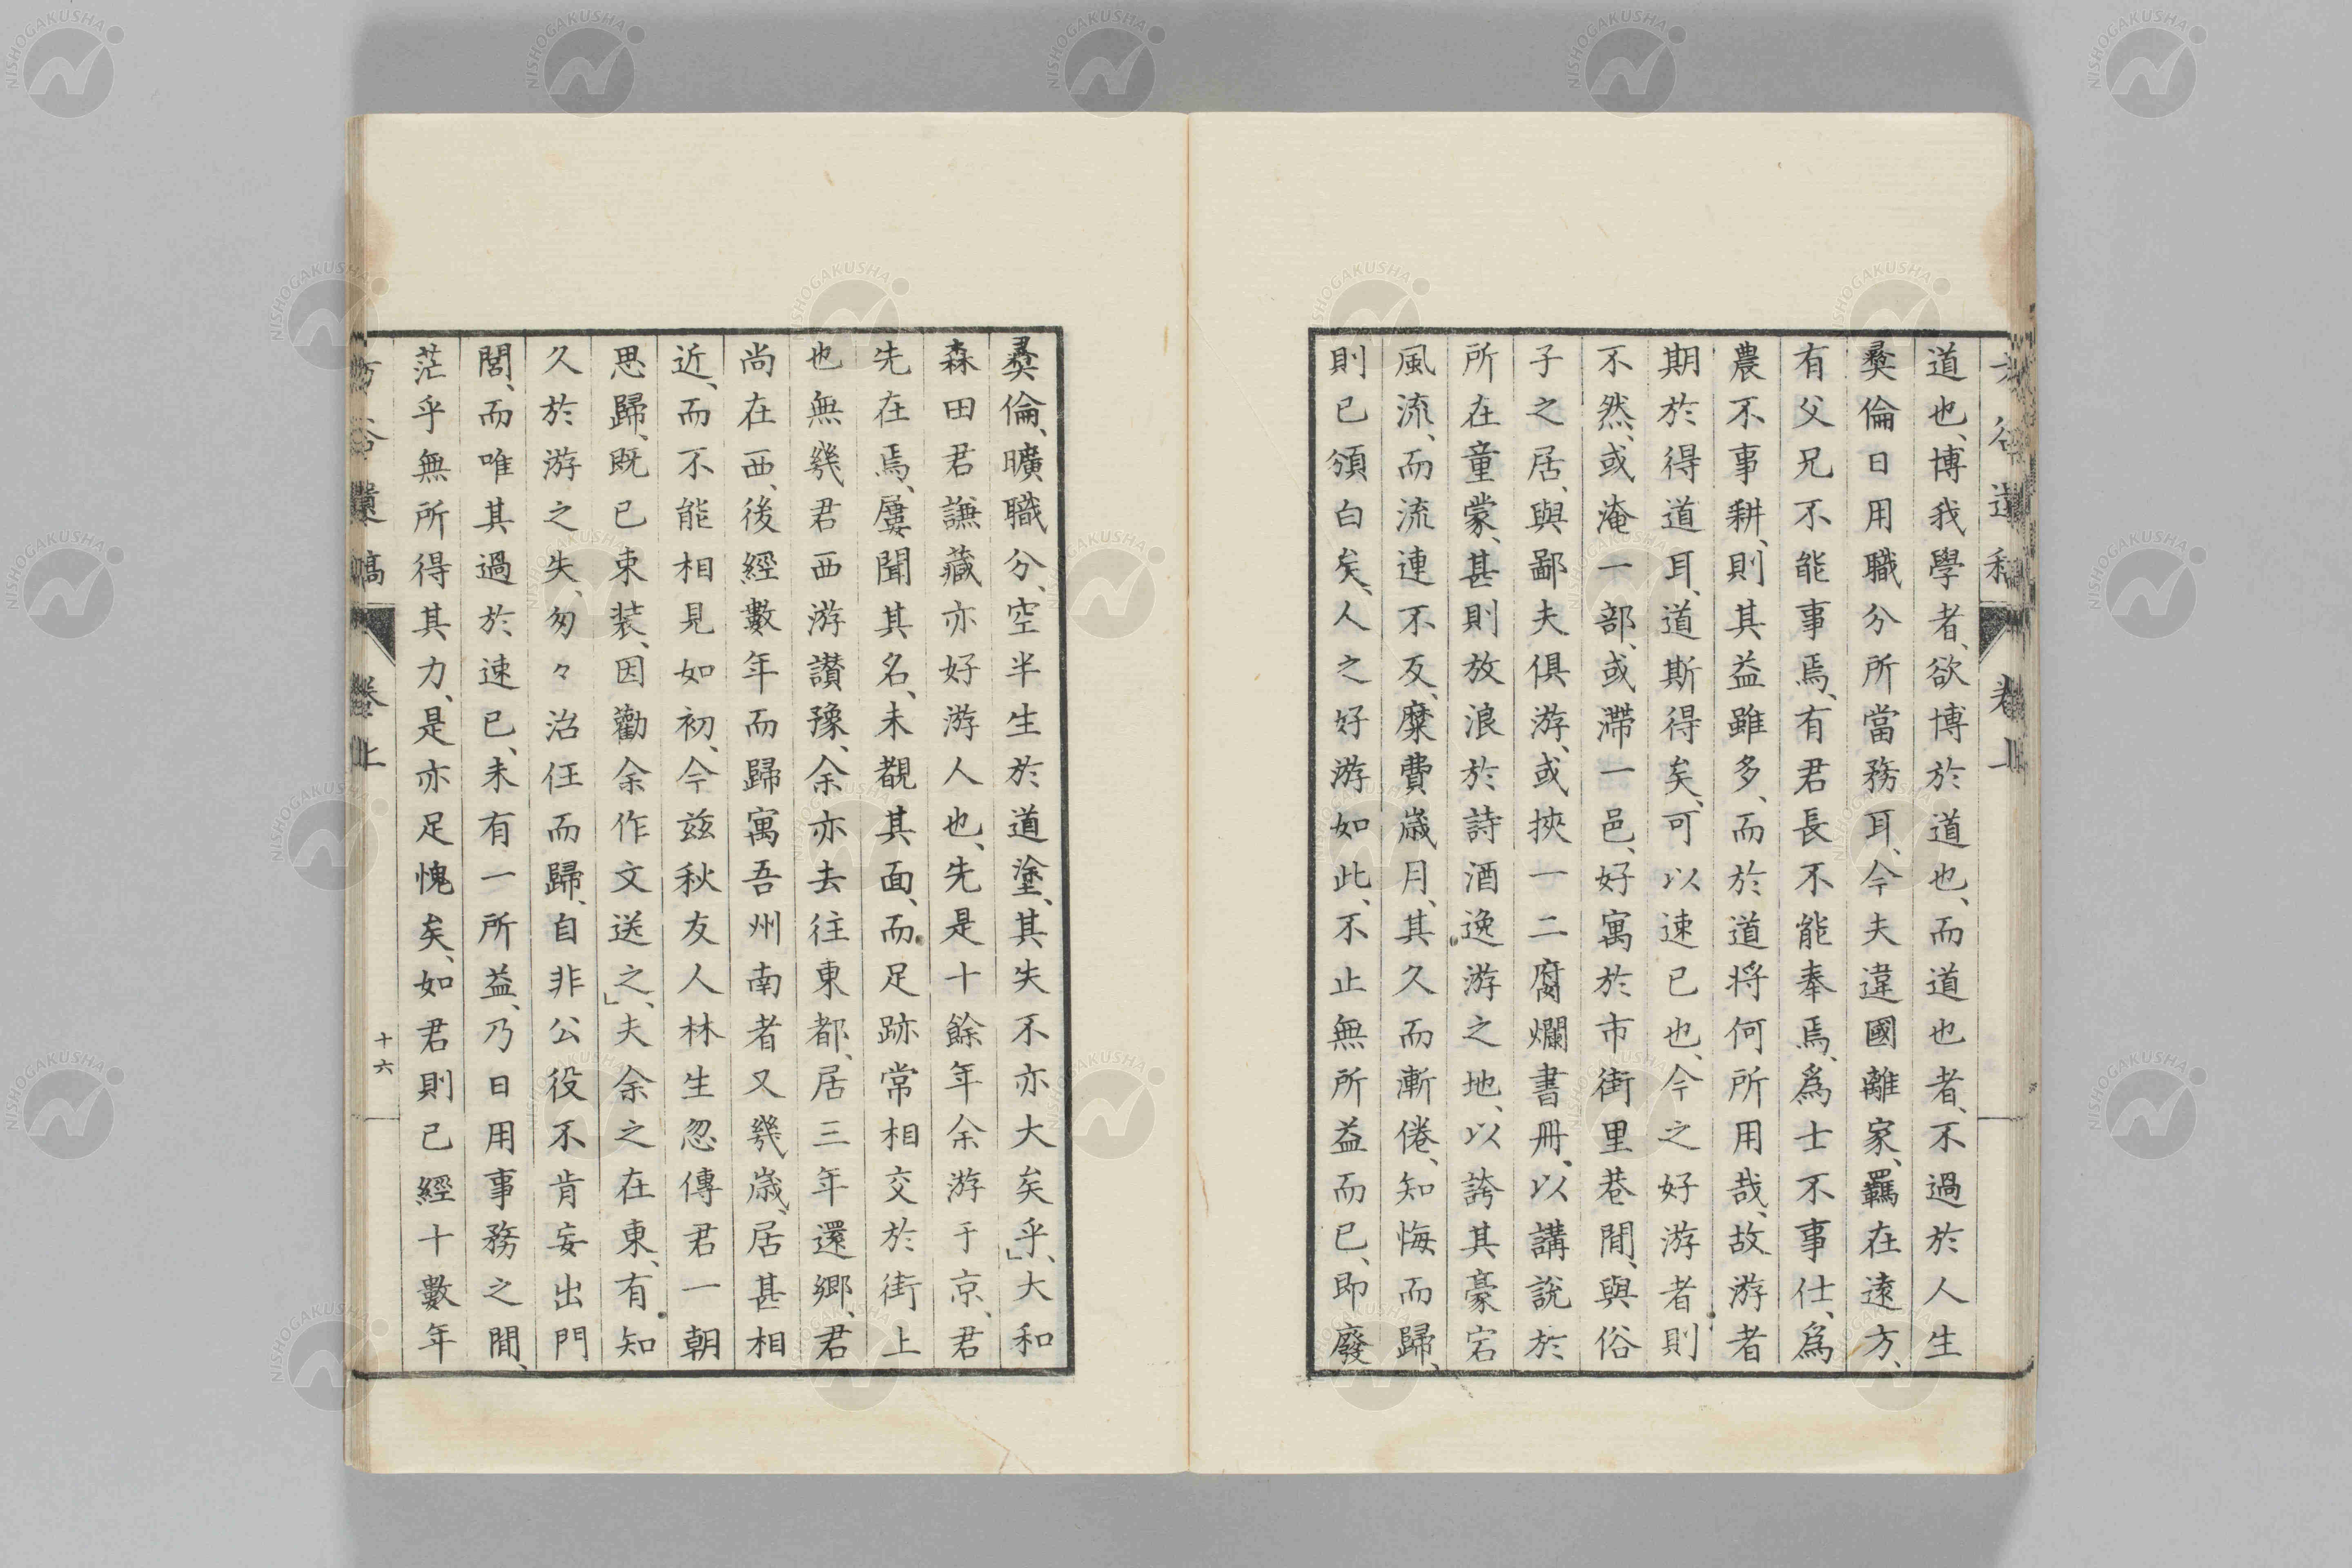 道也、博我學者、欲博於道也、而道也者、不過於人生
彜倫日用職分所當務耳、今夫違國離家、羈在遠方、
有父兄不能事焉、有君長不能奉焉、爲士不事仕、爲
農不事耕、則其益雖多、而於道將何所用哉、故游者
期於得道耳、道斯得矣、可以速已也、今之好游者則
不然、或淹一部、或滯一邑、好寓於市街里巷間、與俗
子之居、與鄙夫俱游、或挾一二腐爛書冊、以講說於
所在童蒙、甚則放浪於詩酒逸游之地、以誇其豪宕
風流、而流連不反、糜費歳月、其久而漸倦、知悔而歸、
則已頒白矣、人之好游如此、不止無所益而已、即廢
彜倫、曠職分、空半生於道塗、其失不亦大矣乎」、大和
森田君謙藏亦好游人也、先是十餘年余游于京、君
先在焉、屢聞其名、未覩其面、而足跡常相交於街上
也無幾君西游讃豫、余亦去往東都、居三年還郷、君
尚在西、後經數年而歸寓吾州南者又幾歳、居甚相
近、而不能相見如初、今茲秋友人林生忽傳君一朝
思歸、既已束装、因勸余作文送之」、夫余之在東、有知
久於游之失、匆々治任而歸、自非公役不肯妄出門
閭、而唯其過於速已、未有一所益、乃日用事務之間、
茫乎無所得其力、是亦足愧矣、如君則已經十數年
遺稿 卷上 十六